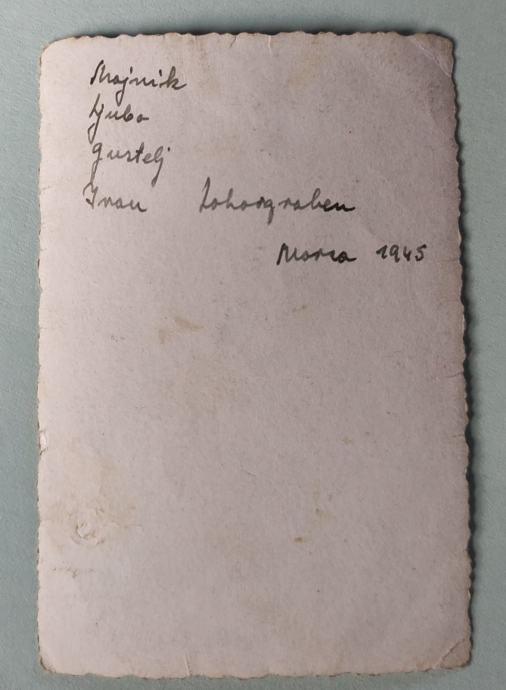 Mojnik
Ljubo
Gustelj
Ivan Lohovgraben
Marca 1945